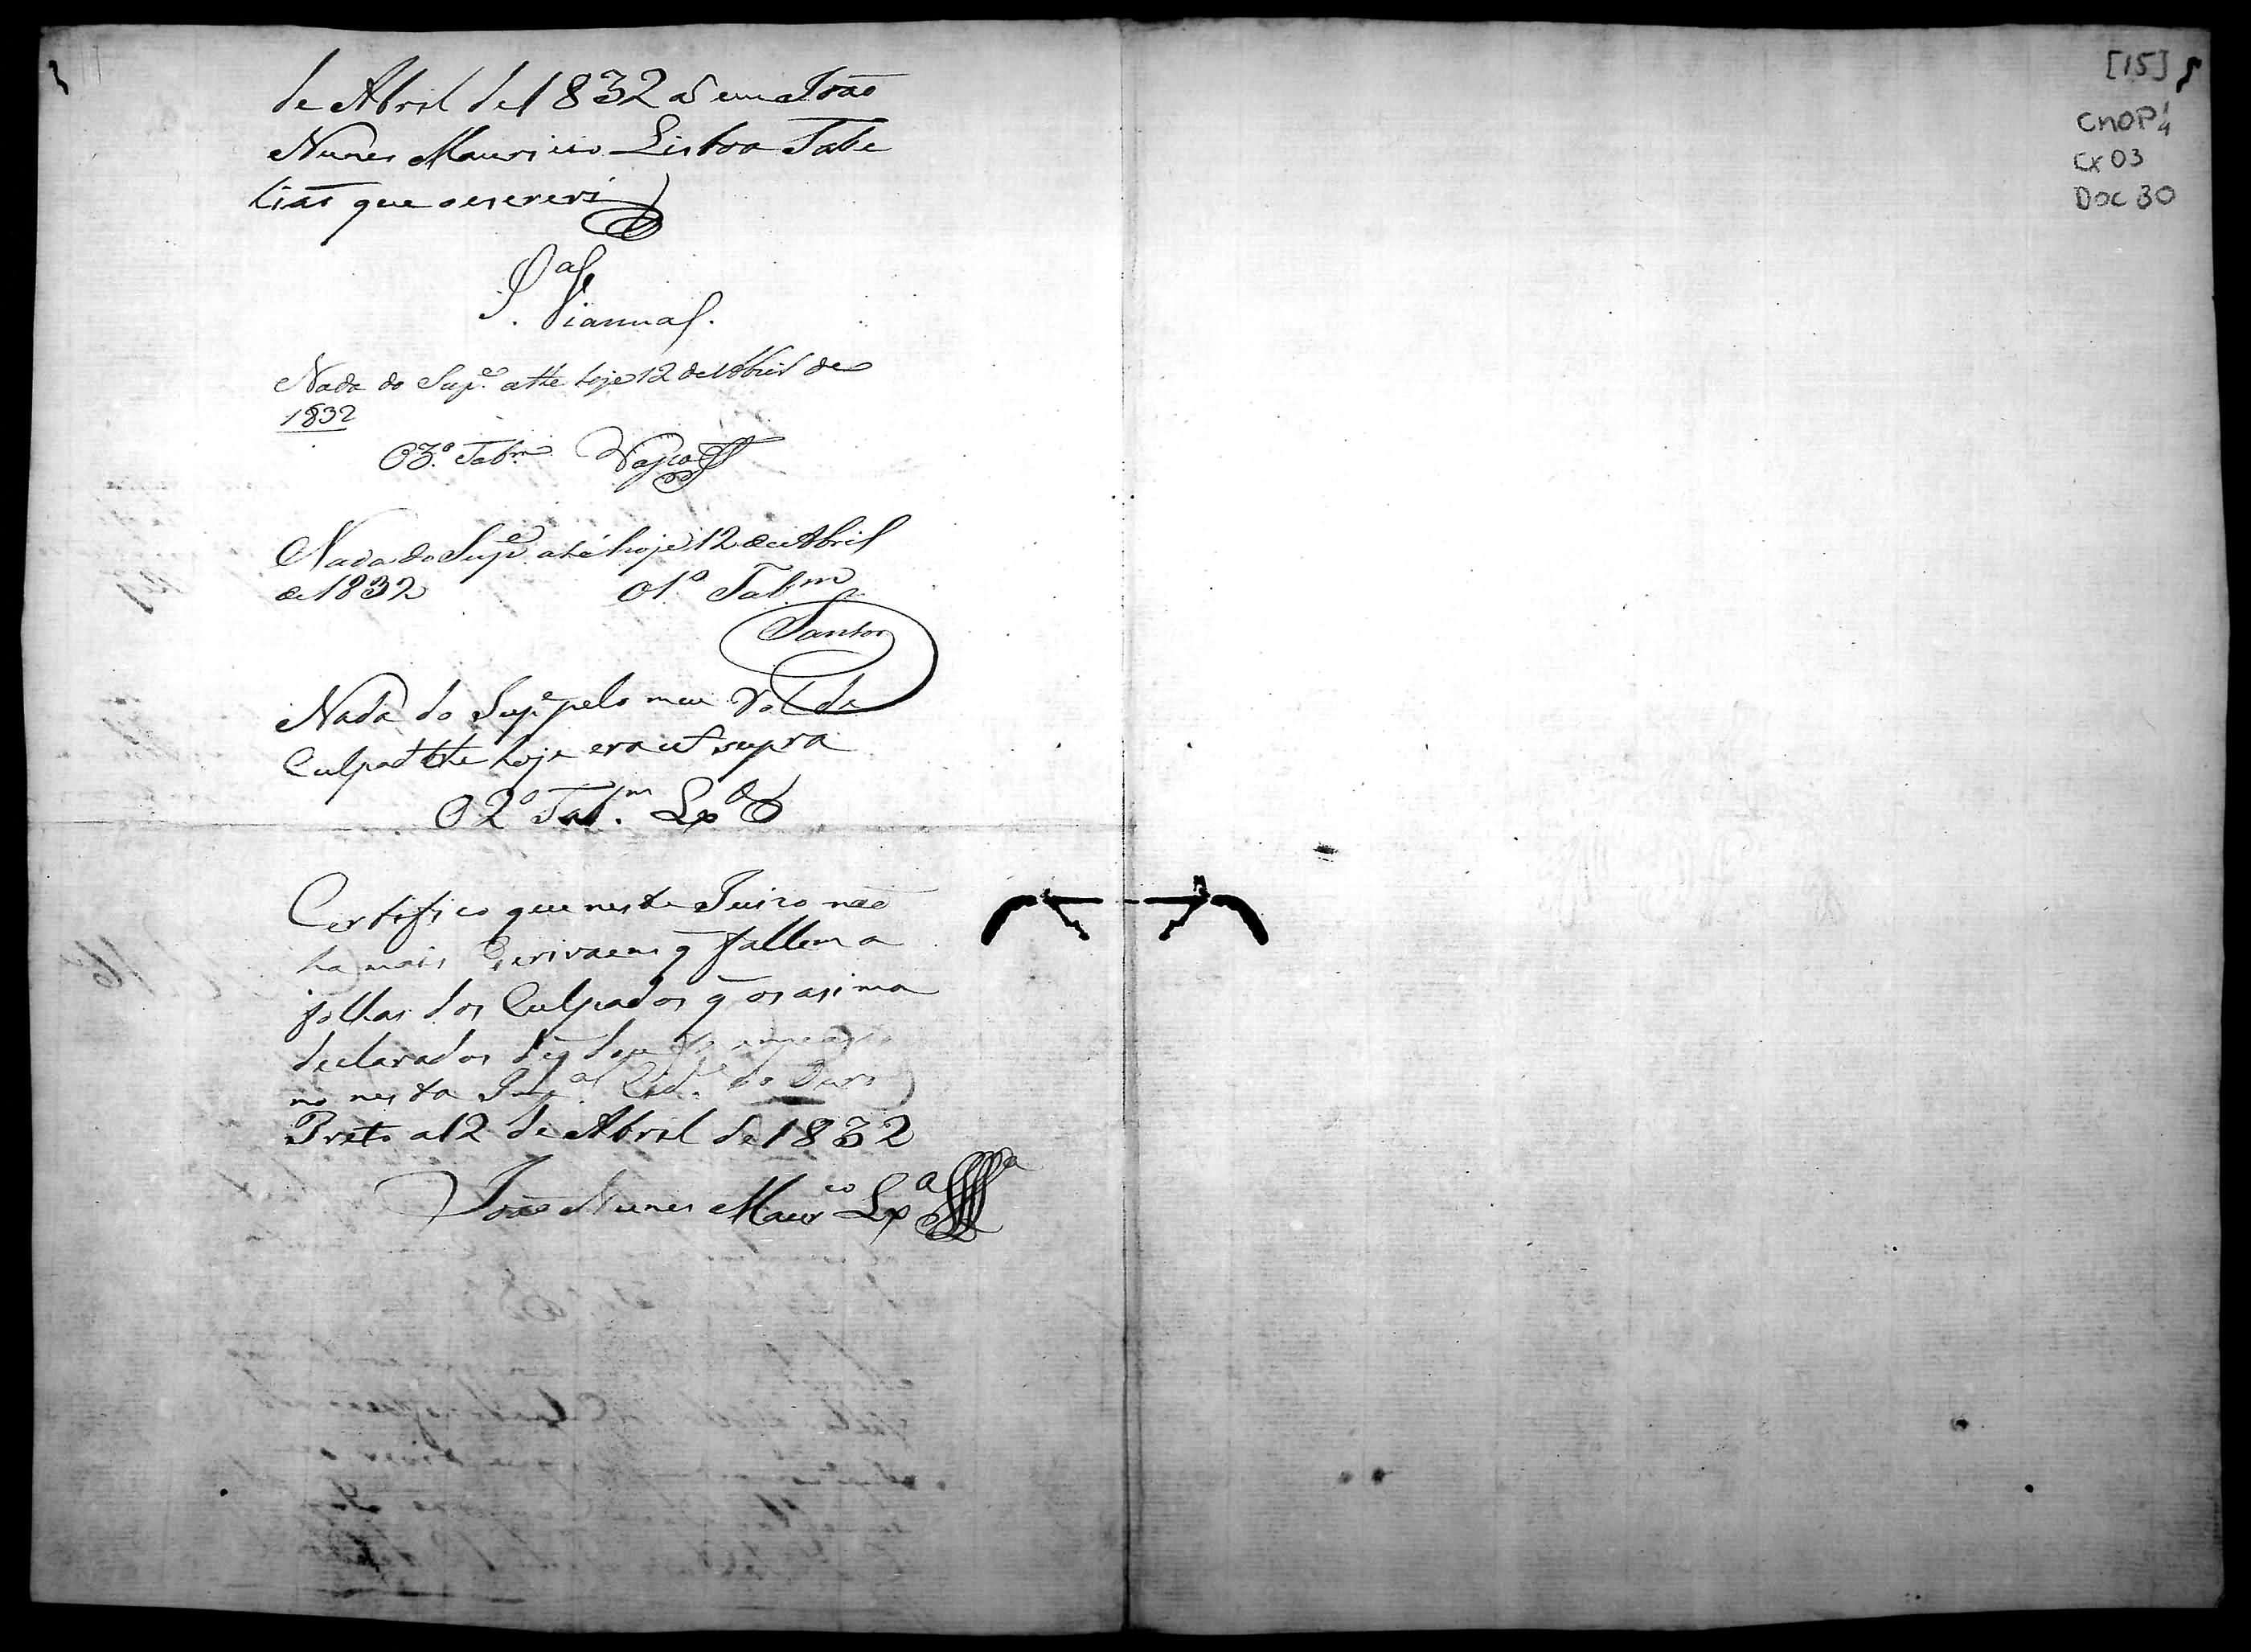 de Abril de 1832 as eu João
Nunes Mauricio Lisboa Tabe
lião que o escrevi
Viannas.
Nada do Sup.e athe hoje 12 de Abril de
1832
O 3.º Tab.m
Nada do Sup.e até hoje 12 de Abril
de 1832 O 1.º Tab.m
Santos
Nada do Sup.e pelo meu Rol de
Culpad athe hoje era ut supra
O 2º Tab.m Lxª
Certefico que neste Juizo não
ha mais Escrivaens q̃ fallem a
folhas dos Culpados q̃ os asima
declarados de q̃ dou fé
no nesta Imp.al Cid.e do Ouro
Preto a 12 de Abril de 1832
João Nunes Maur.co Lx.a
[15]
CMOP 1/4
CX 03
DOC 30